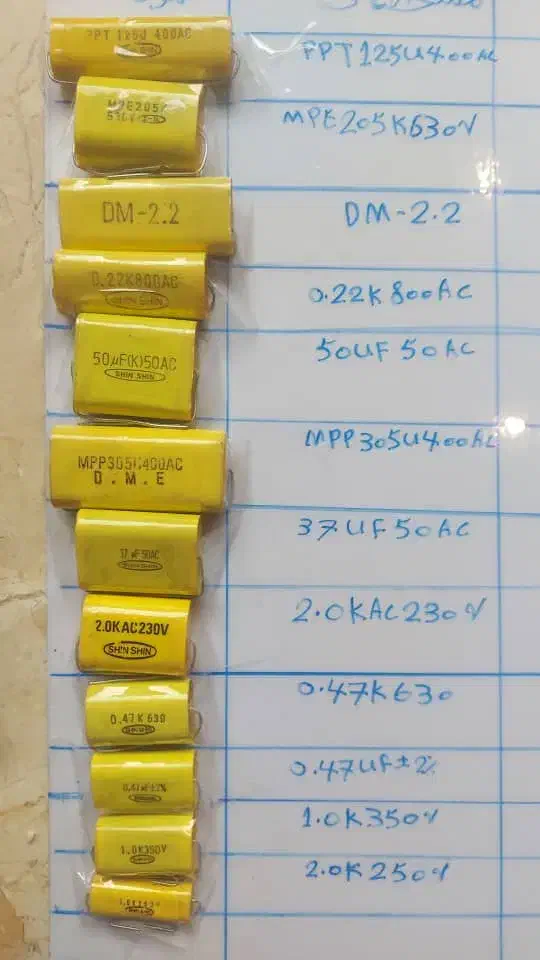 PPT 125U 400AC
PPT125U400AC
MPE205K
630V
MPE205K630V
DM-2.2
DM-2.2
0.22K800AC
SHIN SHIN
0.22K800AC
50µF(K)50AC
SHIN SHIN
50UF 50AC
MPP305U400AC
D.M.E
MPP305U400AC
37µF50AC
SHIN SHIN
37UF50AC
2.0KAC230V
SHIN SHIN
2.0KAC230V
0.47K630
SHIN SHIN
0.47K630
0.47µF±2%
0.47UF±2%
1.0K350V
1.0K350V
2.0K250V